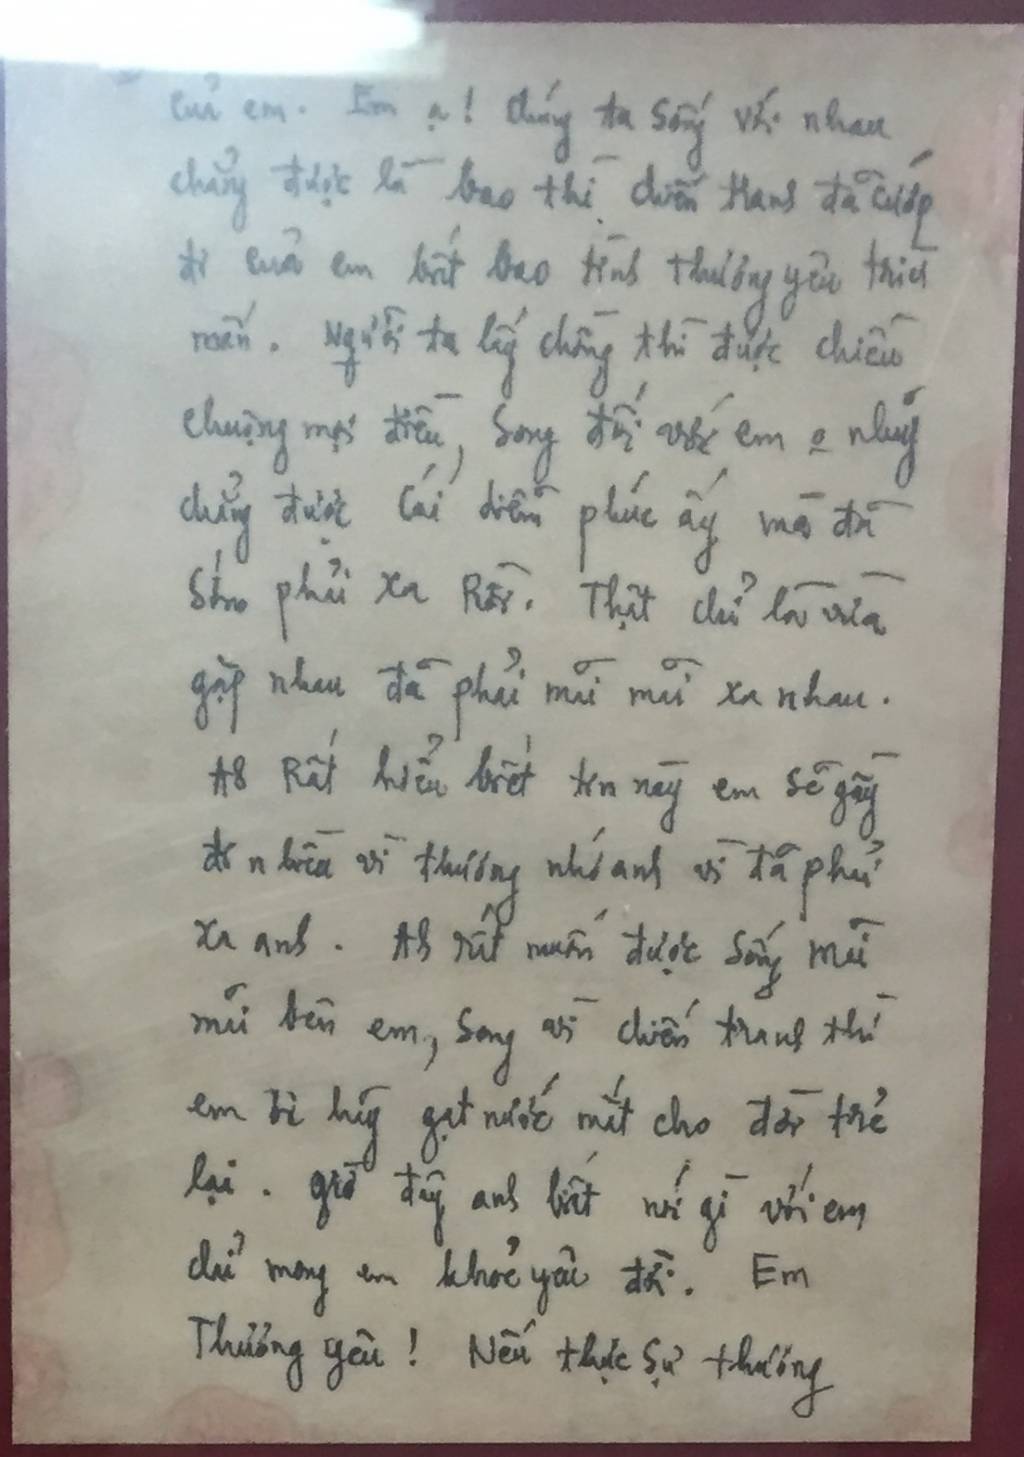 của em. Em ạ! chúng ta sống với nhau
chẳng được là bao thì chiến tranh đã cướp
đi của em biết bao tình thương yêu trìu
mến. Người ta lấy chồng thì được chiều
chuộng mọi điều, song đối với em
chẳng được cái diễm phúc ấy mà đã
sớm phải xa Rồi. Thật chỉ là vừa
gặp nhau đã phải mãi mãi xa nhau.
Ah Rất hiểu biết tin này em sẽ gầy
đi nhiều vì thương nhớ anh vì đã phải
xa anh. Ah rất muốn được sống mãi
mãi bên em, song vì chiến tranh thì
em ơi hãy gạt nước mắt cho đời trẻ
lại. giờ đây anh biết nói gì với em
chỉ mong em khoẻ yêu đời. Em
Thương yêu! Nếu thực sự thương